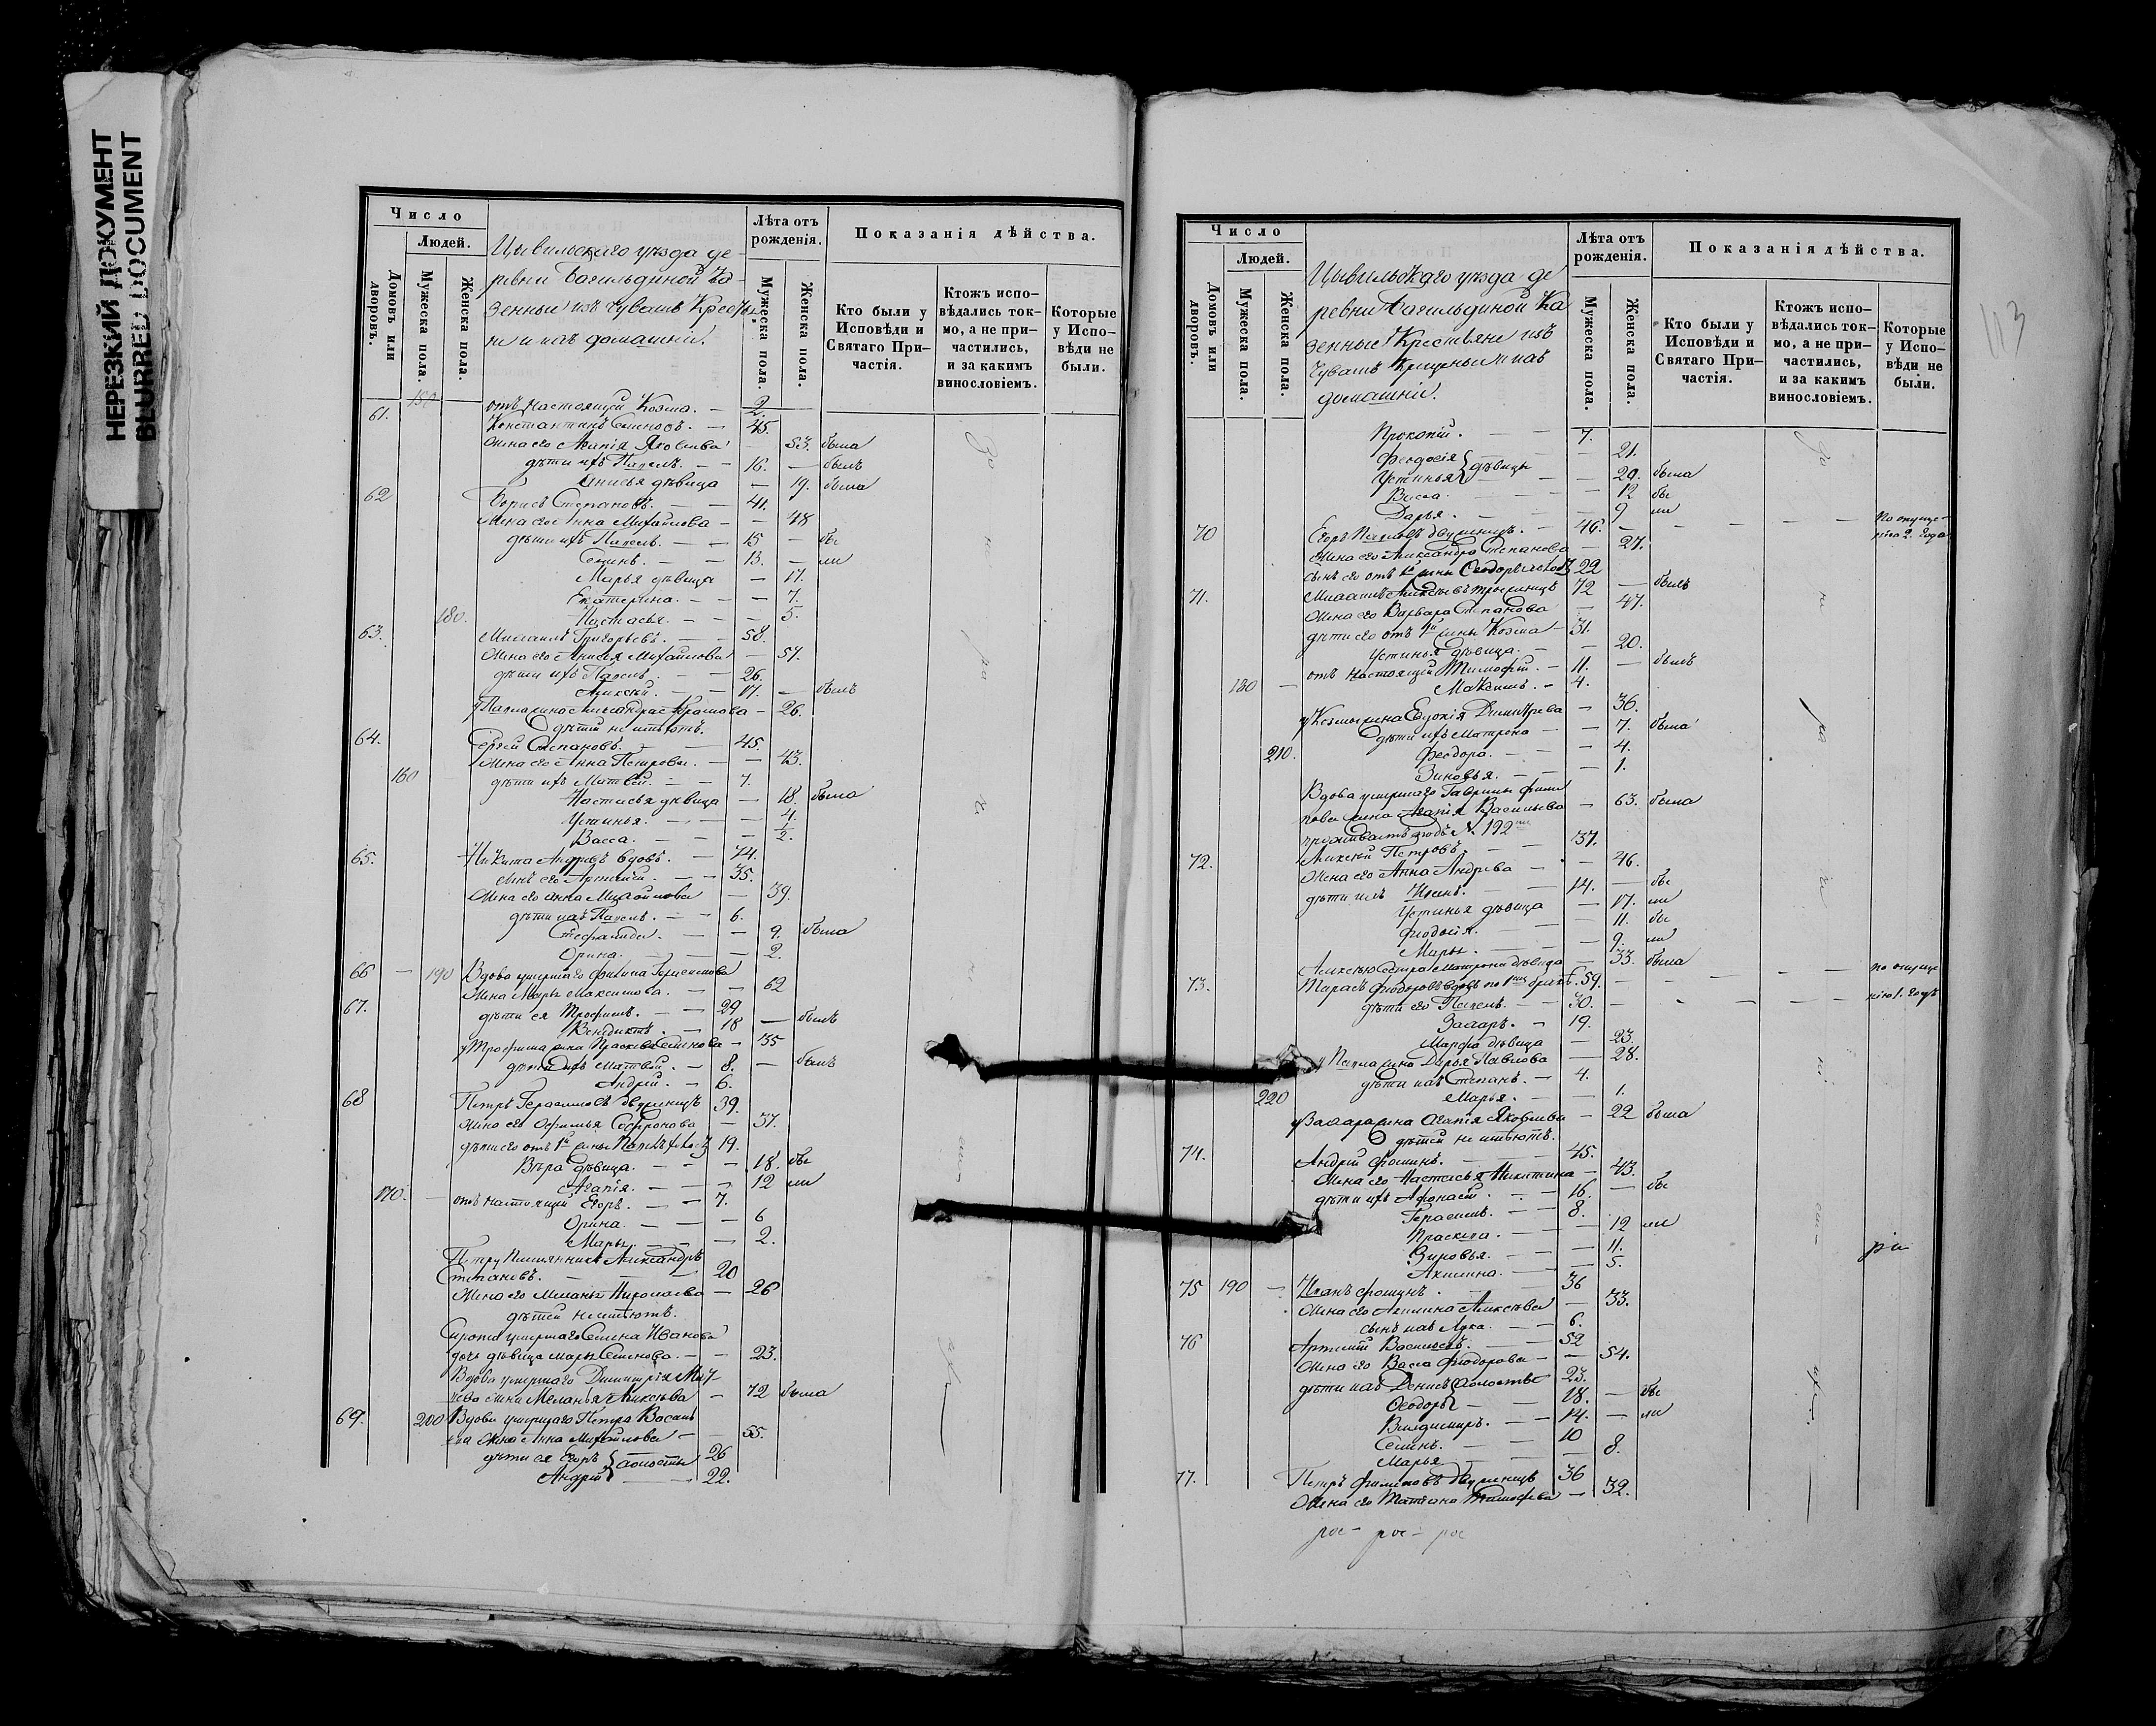 НЕРЕЗКИЙ ДОКУМЕНТ
BLURRED DOCUMENT
Число
Людей.
Домовъ или дворовъ.
Мужеска пола.
Женска пола.
Цывильскаго уѣзда де-
ревни
зенные изъ Чувашъ Крестья
не и ихъ домашніи.
Лѣта отъ рожденія.
Мужеска пола.
Женска пола.
Показанія дѣйства.
Кто были у Исповѣди и Святаго При-частія.
Ктожъ испо-вѣдались ток-мо, а не при-частились, и за какимъ винословіемъ.
Которые у Испо-вѣди не были.
150 отъ настоящей Козма. — 2.
61. Константинъ Семеновъ. — 45.
Жена его Агапія Яковлева 53. была
дѣти ихъ Павелъ. — — 16. — былъ
Анисья дѣвица — 19. была
62 Борисъ Степановъ. — — 41.
Жена его Анна Михайлова — — 48
дѣти ихъ Павелъ. — — 15 — бы
Семенъ. — — 13. — ли
Марья дѣвица — 17.
Екатерина. — — — 7.
180. Настасья. — — — 5.
63. Михаилъ Григорьевъ. — — 58.
Жена его Анисья Михайлова — 57.
дѣти ихъ Павелъ. — — 26.
Алексѣй. — — 17. — былъ
у Павла жена Александра Абрамова — 26.
дѣтей не имѣютъ.
64. Сергѣй Степановъ. — — 45.
Жена его Анна Петрова. — — 43.
160 дѣти ихъ Матвѣй. — — 7.
Настасья дѣвица — 18. была
Устинья. — — — 4.
Васса. — — — ½.
65. Никита Андреевъ вдовъ. — 74.
сынъ его Артемій. — — 35.
Жена его Анна Михайлова — 39.
дѣти ихъ Павелъ. — — 6.
Степанида. — — 9. была
Орина. — — — 2.
66 — 190 Вдова умершаго Филипа Герасимова
жена Марья Максимова. — — 62
67. дѣти ея Трофимъ. — — 29
Венедиктъ. — — 18 — былъ
у Трофима жена Прасковья Семенова — 35
дѣти ихъ Матвѣй. — 8. — былъ
Андрей. — 6.
68 Петръ Герасимовъ двуженецъ 39.
Жена его Софронова — 37.
дѣти его отъ 1й жены Павелъ холост 19.
Вѣра дѣвица. — — — 18. бы
Агапія. — — — 12 ли
170. — отъ настоящей Егоръ. — — 7.
Орина. — — — 6
Марья. — — — 2.
Петру племянникъ Александръ
Степановъ. — — — 20
Жена его Меланья Николаева — 26
дѣтей неимѣютъ.
Сирота умершаго Семена Иванова
дочь дѣвица Марья Семенова. — — 23.
Вдова умершаго Димитрія
жена Меланья Алексѣева — 72 была
69. 200 Вдова умершаго Петра Василь
ева жена Анна Михайлова — — 55.
дѣти ея Егоръ } холосты 26
Андрей — — 22.
До
не
ра
Число
Людей.
Домовъ или дворовъ.
Мужеска пола.
Женска пола.
Цывильскаго уѣзда де
ревни
зенные Крестьяне изъ
Чувашъ Крещеные и ихъ
домашніи.
Лѣта отъ рожденія.
Мужеска пола.
Женска пола.
Показанія дѣйства.
Кто были у Исповѣди и Святаго При-частія.
Ктожъ испо-вѣдались ток-мо, а не при-частились, и за какимъ винословіемъ.
Которые у Испо-вѣди не были.
113
Прокопій. — — 7.
Феодосія } дѣвицы — 21.
Устинья — — 20. была
Васса. — — — 12 бы
Дарья. — — — 9 ли
70 Егоръ Павловъ двуженецъ. — 46. — — — — — по опуще-
нію 2 года
Жена его Александра Степанова — 27.
сынъ его отъ 1й жены Ѳеодоръ холост 22
71. Михаилъ Алексѣевъ троеженецъ 72 — былъ
Жена его Варвара Степанова — 47.
дѣти его отъ 1й жены Козма — 31.
Устинья дѣвица. — — 20.
отъ настоящей Тимофей. — 11. — былъ
180 — Максимъ. — 4.
у Козмы жена Евдокія Димитріева — 36.
дѣти ихъ Матрона — — 7. была
210. Феодора. — — — 4.
Зиновья. — — — 1.
Вдова умершаго Гаврилы Фили
пова жена Агапія Васильева — 63. была
проживаетъ подъ № 192
72. Алексѣй Петровъ. — — 37.
Жена его Анна Андреева — — 46.
дѣти ихъ Иванъ. — — 14. — бы
Устинья дѣвица — 17. ли
Феодосія. — — — 11. бы
Марья. — — — 9. ли
Алексѣю сестра Матрона дѣвица — 33. была
73. Тарасъ Феодоровъ вдовъ по 1мъ бракѣ. 59. — — — — по опуще
нію 1. годъ
дѣти его Павелъ. — — 30. — — — —
Захаръ. — 19.
Марфа дѣвица — 23.
у Павла жена Дарья Павлова — 28.
дѣти ихъ Степанъ. — 4.
220 Марья. — — 1.
у Захара жена Агапія Яковлева — 22 была
дѣтей не имѣютъ.
74. Андрей Фоминъ. — — 45.
Жена его Настасья Никитина — 43.
дѣти ихъ Афонасій. — — 16. — бы
Герасимъ. — — 8.
Праскева. — — 12 ли
Зиновья. — — — 11.
Акилина. — — 5.
75 190 — Иванъ Фоминъ. — — 36
Жена его Акилина Алексѣева — 33.
сынъ ихъ Лука. — — 6.
76 Артемій Васильевъ. — — 52
Жена его Васса Феодорова — — 54.
дѣти ихъ Денисъ } холосты 23.
Ѳеодоръ — 18. — бы
Владимиръ. — — 14. — ли
Семенъ. — — 10
Марья — — — 8.
77. Петръ Филиповъ двуженецъ 36
Жена его Татіана Тимофеева — 32.
До
не
ра